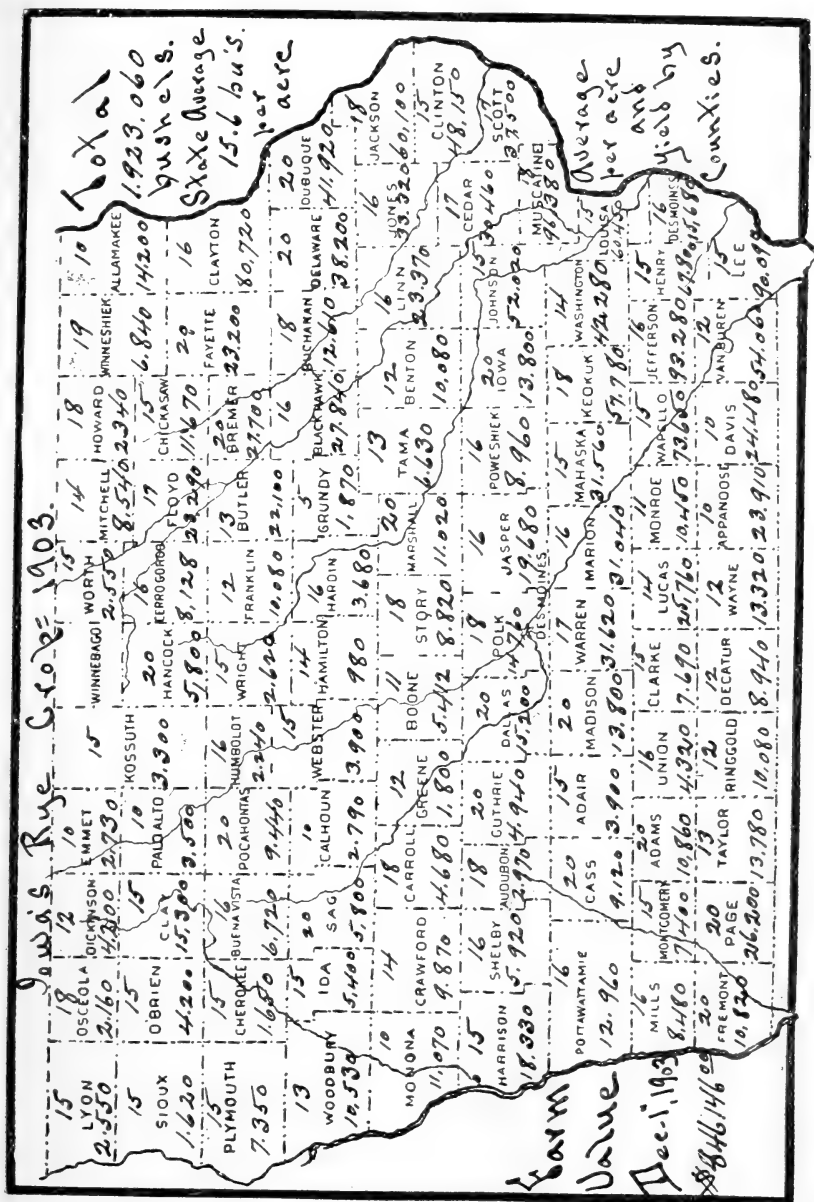 Iowa's Rye Crop = 1903.
Total
1.923.060
bushels.
State Average
15.6 bu's.
per
acre
15
LYON
2.550
18
OSCEOLA
2.160
12
DICKINSON
4.200
10
EMMET
2.730
15
KOSSUTH
3.300
WINNEBAGO
15
WORTH
2.550
14
MITCHELL
8.540
18
HOWARD
2340
19
WINNESHIEK
6.840
10
ALLAMAKEE
14200
15
SIOUX
1.620
15
O'BRIEN
4.200
15
CLAY
15.300
10
PALO ALTO
3.500
20
HANCOCK
5.800
16
CERRO GORDO
8,128
17
FLOYD
23.290
15
CHICKASAW
11.670
20
FAYETTE
23.200
16
CLAYTON
80,720
15
PLYMOUTH
7.350
15
CHEROKEE
1.650
16
BUENA VISTA
6.720
20
POCAHONTAS
9.440
16
HUMBOLDT
2.240
15
WRIGHT
2.620
12
FRANKLIN
10.080
13
BUTLER
22,100
20
BREMER
27.700
13
WOODBURY
10,530
15
IDA
5.400
20
SAC
5.800
10
CALHOUN
2.790
15
WEBSTER
3.900
14
HAMILTON
980
16
HARDIN
3.680
5
GRUNDY
1,870
16
BLACK HAWK
27.840
18
BUCHANAN
12.610
20
DELAWARE
38.200
20
DUBUQUE
41.920
10
MONONA
11,070
14
CRAWFORD
9.870
18
CARROLL
4.680
12
GREENE
1.800
11
BOONE
5.412
18
STORY
8.820
20
MARSHALL
11.020
13
TAMA
6.630
12
BENTON
10,080
16
LINN
23.370
16
JONES
33.320
18
JACKSON
60,100
15
HARRISON
18.330
16
SHELBY
5.920
18
AUDUBON
2.970
20
GUTHRIE
4.940
20
DALLAS
15.200
18
POLK
14.760
DES MOINES
16
JASPER
19.680
16
POWESHIEK
8.960
20
IOWA
13.800
15
JOHNSON
52.020
17
CEDAR
30.460
15
CLINTON
48,150
17
SCOTT
37.500
18
MUSCATINE
96.380
16
POTTAWATTAMIE
12.960
20
CASS
9.120
15
ADAIR
3.900
20
MADISON
13.800
17
WARREN
31.620
16
MARION
31.040
15
MAHASKA
31.560
18
KEOKUK
57.780
14
WASHINGTON
42.280
15
LOUISA
60.450
16
MILLS
8.480
15
MONTGOMERY
7.400
20
ADAMS
10,860
16
UNION
4.320
15
CLARKE
7.690
14
LUCAS
25,760
11
MONROE
10.450
15
WAPELLO
73.600
16
JEFFERSON
93.280
15
HENRY
67.800
16
DES MOINES
15,680
20
FREMONT
10,820
20
PAGE
26.200
13
TAYLOR
13.780
12
RINGGOLD
10.080
12
DECATUR
8.940
12
WAYNE
13.320
10
APPANOOSE
23.910
10
DAVIS
24.480
12
VAN BUREN
54.060
15
LEE
90.090
Farm
Value
Dec-1,1903
$846146 00
Average
per acre
and
yield by
Counties.